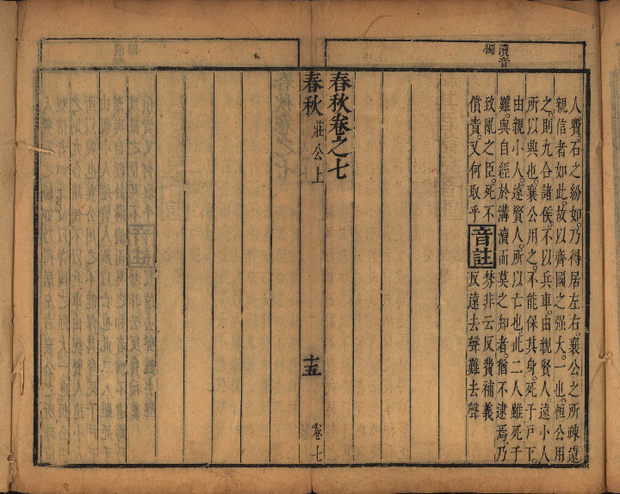 瀆音
獨
人費。石之紛如。乃得居左右。襄公之所疎遠
親信者如此。故以齊國之强大。一也。桓公用
之。則九合諸侯。不以兵車。由親賢人遠小人
所以興也。襄公用之。不能保其身。死于戶下。
由親小人遠賢人。所以亡也。此二人雖死于
難。與自經於溝瀆而莫之知者。猶不逮焉。乃
致亂之臣。死不
償責。又何取乎
音註
棼非云反費補義
反遠去聲難去聲
春秋卷之七
春秋
莊公上
十五
卷七